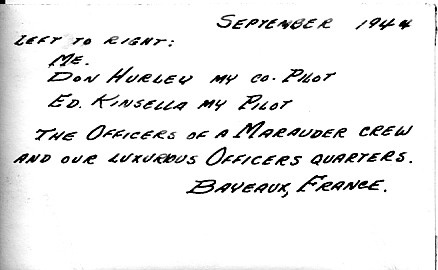 SEPTEMBER 1944
LEFT TO RIGHT:
ME.
DON HURLEY MY CO. PILOT
ED. KINSELLA MY PILOT
THE OFFICERS OF A MARAUDER CREW
AND OUR LUXURIOUS OFFICERS QUARTERS.
BAYEAUX, FRANCE.